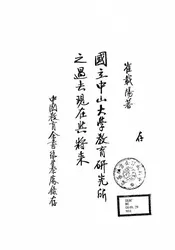 崔載陽著
存
國立中山大學教育研究所
之過去現在與將來
中國教育全書編纂處存